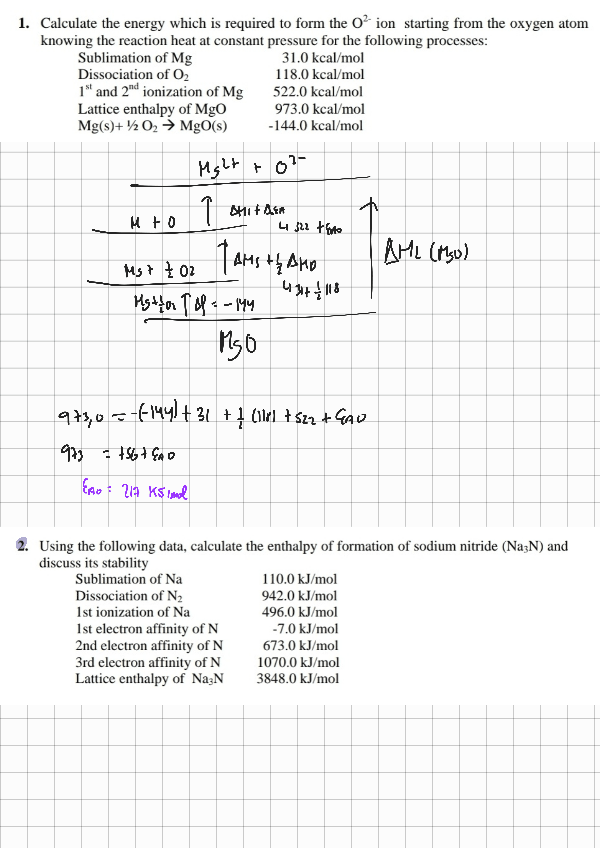 1. Calculate the energy which is required to form the O²⁻ ion starting from the oxygen atom
knowing the reaction heat at constant pressure for the following processes:
Sublimation of Mg 31.0 kcal/mol
Dissociation of O₂ 118.0 kcal/mol
1ˢᵗ and 2ⁿᵈ ionization of Mg 522.0 kcal/mol
Lattice enthalpy of MgO 973.0 kcal/mol
Mg(s)+ ½ O₂ → MgO(s) -144.0 kcal/mol
Mg²⁺ + O²⁻
↑ ΔHI + ΔEA
M + O ↳ 522 + EAO
ΔHL (MgO)
Mg + ½ O₂ ↑ ΔHS + ½ ΔHD
↳ 31 + ½ 118
Mg + ½ O₂ ↑ Δf = -144
MgO
973,0 = -(-144) + 31 + ½ (118) + 522 + EAO
973 = 756 + EAO
EAO = 217 KJ/mol
2. Using the following data, calculate the enthalpy of formation of sodium nitride (Na₃N) and
discuss its stability
Sublimation of Na 110.0 kJ/mol
Dissociation of N₂ 942.0 kJ/mol
1st ionization of Na 496.0 kJ/mol
1st electron affinity of N -7.0 kJ/mol
2nd electron affinity of N 673.0 kJ/mol
3rd electron affinity of N 1070.0 kJ/mol
Lattice enthalpy of Na₃N 3848.0 kJ/mol